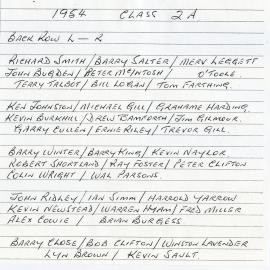 1964 CLASS 2A
BACK ROW L - R
RICHARD SMITH / BARRY SALTER / MERV LEGGETT
JOHN BUGDEN / PETER McINTOSH / O'TOOLE.
TERRY TALBOT / BILL LOGAN / TOM FARTHING.
KEN JOHNSTON / MICHAEL GILL / GRAHAME HARDING.
KEVIN BURKHILL / DREW BAMFORTH / JIM GILMOUR.
GARRY CULLEN / ERNIE RILEY / TREVOR GILL.
BARRY WINTER / BARRY KING / KEVIN NAYLOR.
ROBERT SHORTLAND / RAY FOSTER / PETER CLIFTON
COLIN WRIGHT / WAL PARSONS.
JOHN RIDLEY / IAN SIMM / HARROLD YARROW
KEVIN NEWSTEAD / WARREN HYAM / FRED MILLER
ALEX COWIE / BRIAN BURGESS
BARRY CLOSE / BOB CLIFTON / WINSTON LAVENDER
LYN BROWN / KEVIN SAULT.